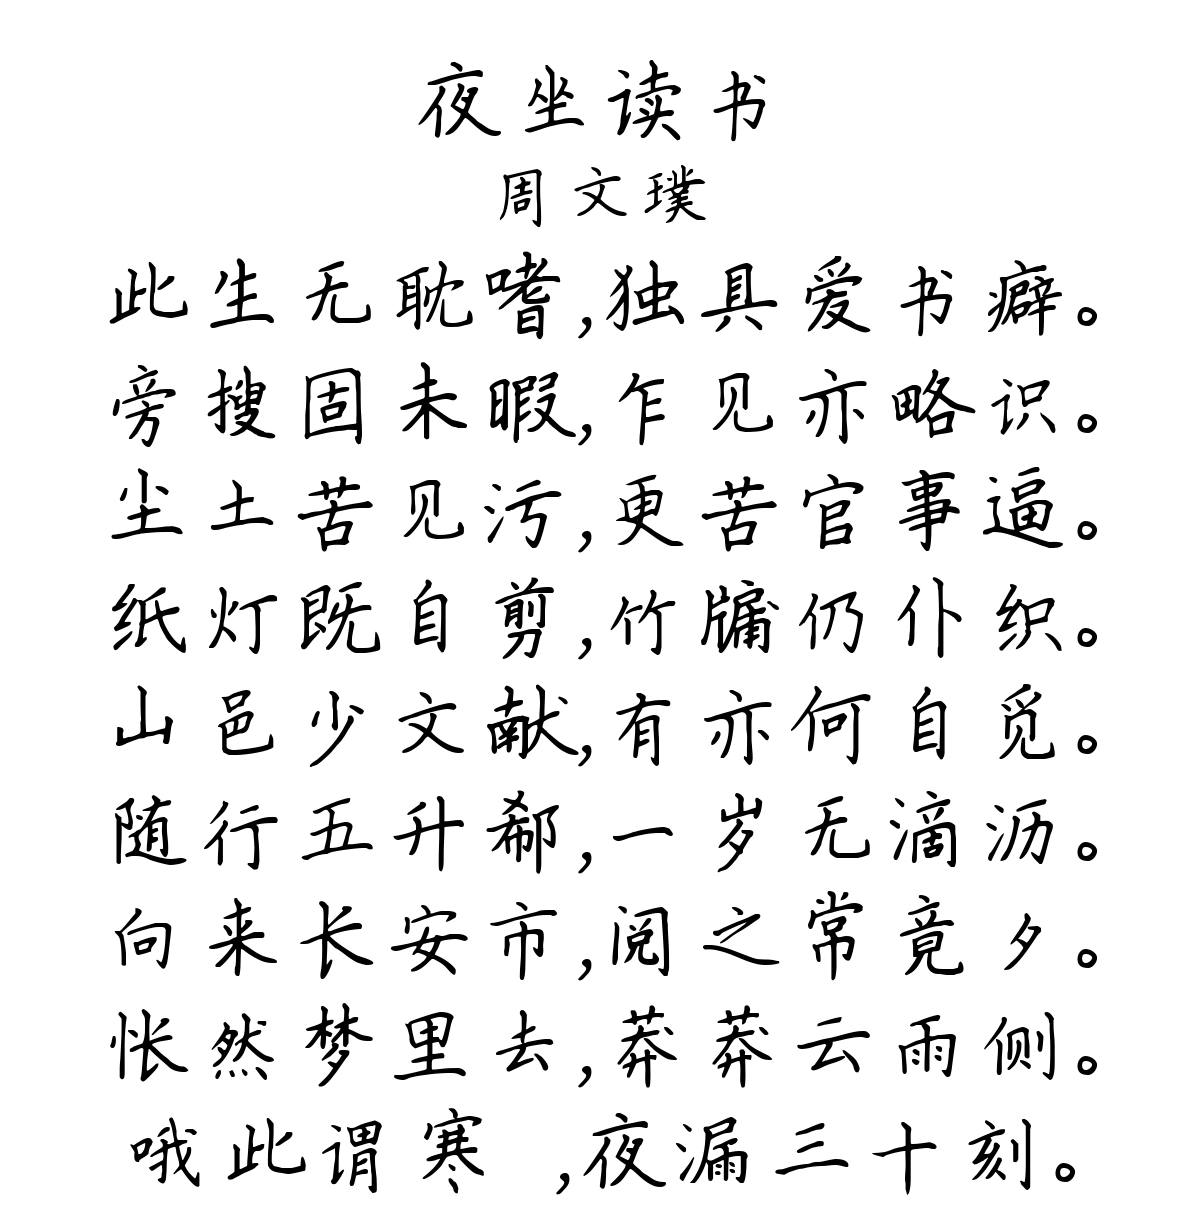 夜坐读书
周文璞
此生无耽嗜,独具爱书癖。
旁搜固未暇,乍见亦略识。
尘土苦见污,更苦官事逼。
纸灯既自剪,竹牖仍仆织。
山邑少文献,有亦何自觅。
随行五升郗,一岁无滴沥。
向来长安市,阅之常竟夕。
怅然梦里去,莽莽云雨侧。
哦此谓寒 ,夜漏三十刻。